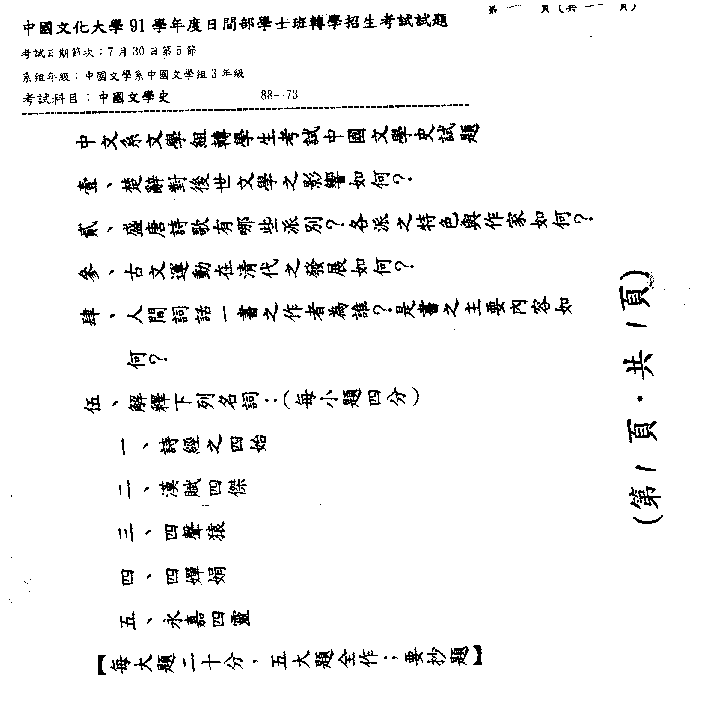 中國文化大學91學年度日間部學士班轉學招生考試試題
第一頁(共一頁)
考試日期節次：7月30日第5節
系組年級：中國文學系中國文學組3年級
考試科目：中國文學史 88-73
中文系文學組轉學生考試中國文學史試題
壹、楚辭對後世文學之影響如何？
貳、盛唐詩歌有哪些派別？各派之特色與作家如何？
參、古文運動在清代之發展如何？
肆、人間詞話一書之作者為誰？是書之主要內容如
何？
伍、解釋下列名詞：（每小題四分）
一、詩經之四始
二、漢賦四傑
三、四聲猿
四、四嬋娟
五、永嘉四靈
【每大題二十分，五大題全作；要抄題】
（第1頁・共1頁）